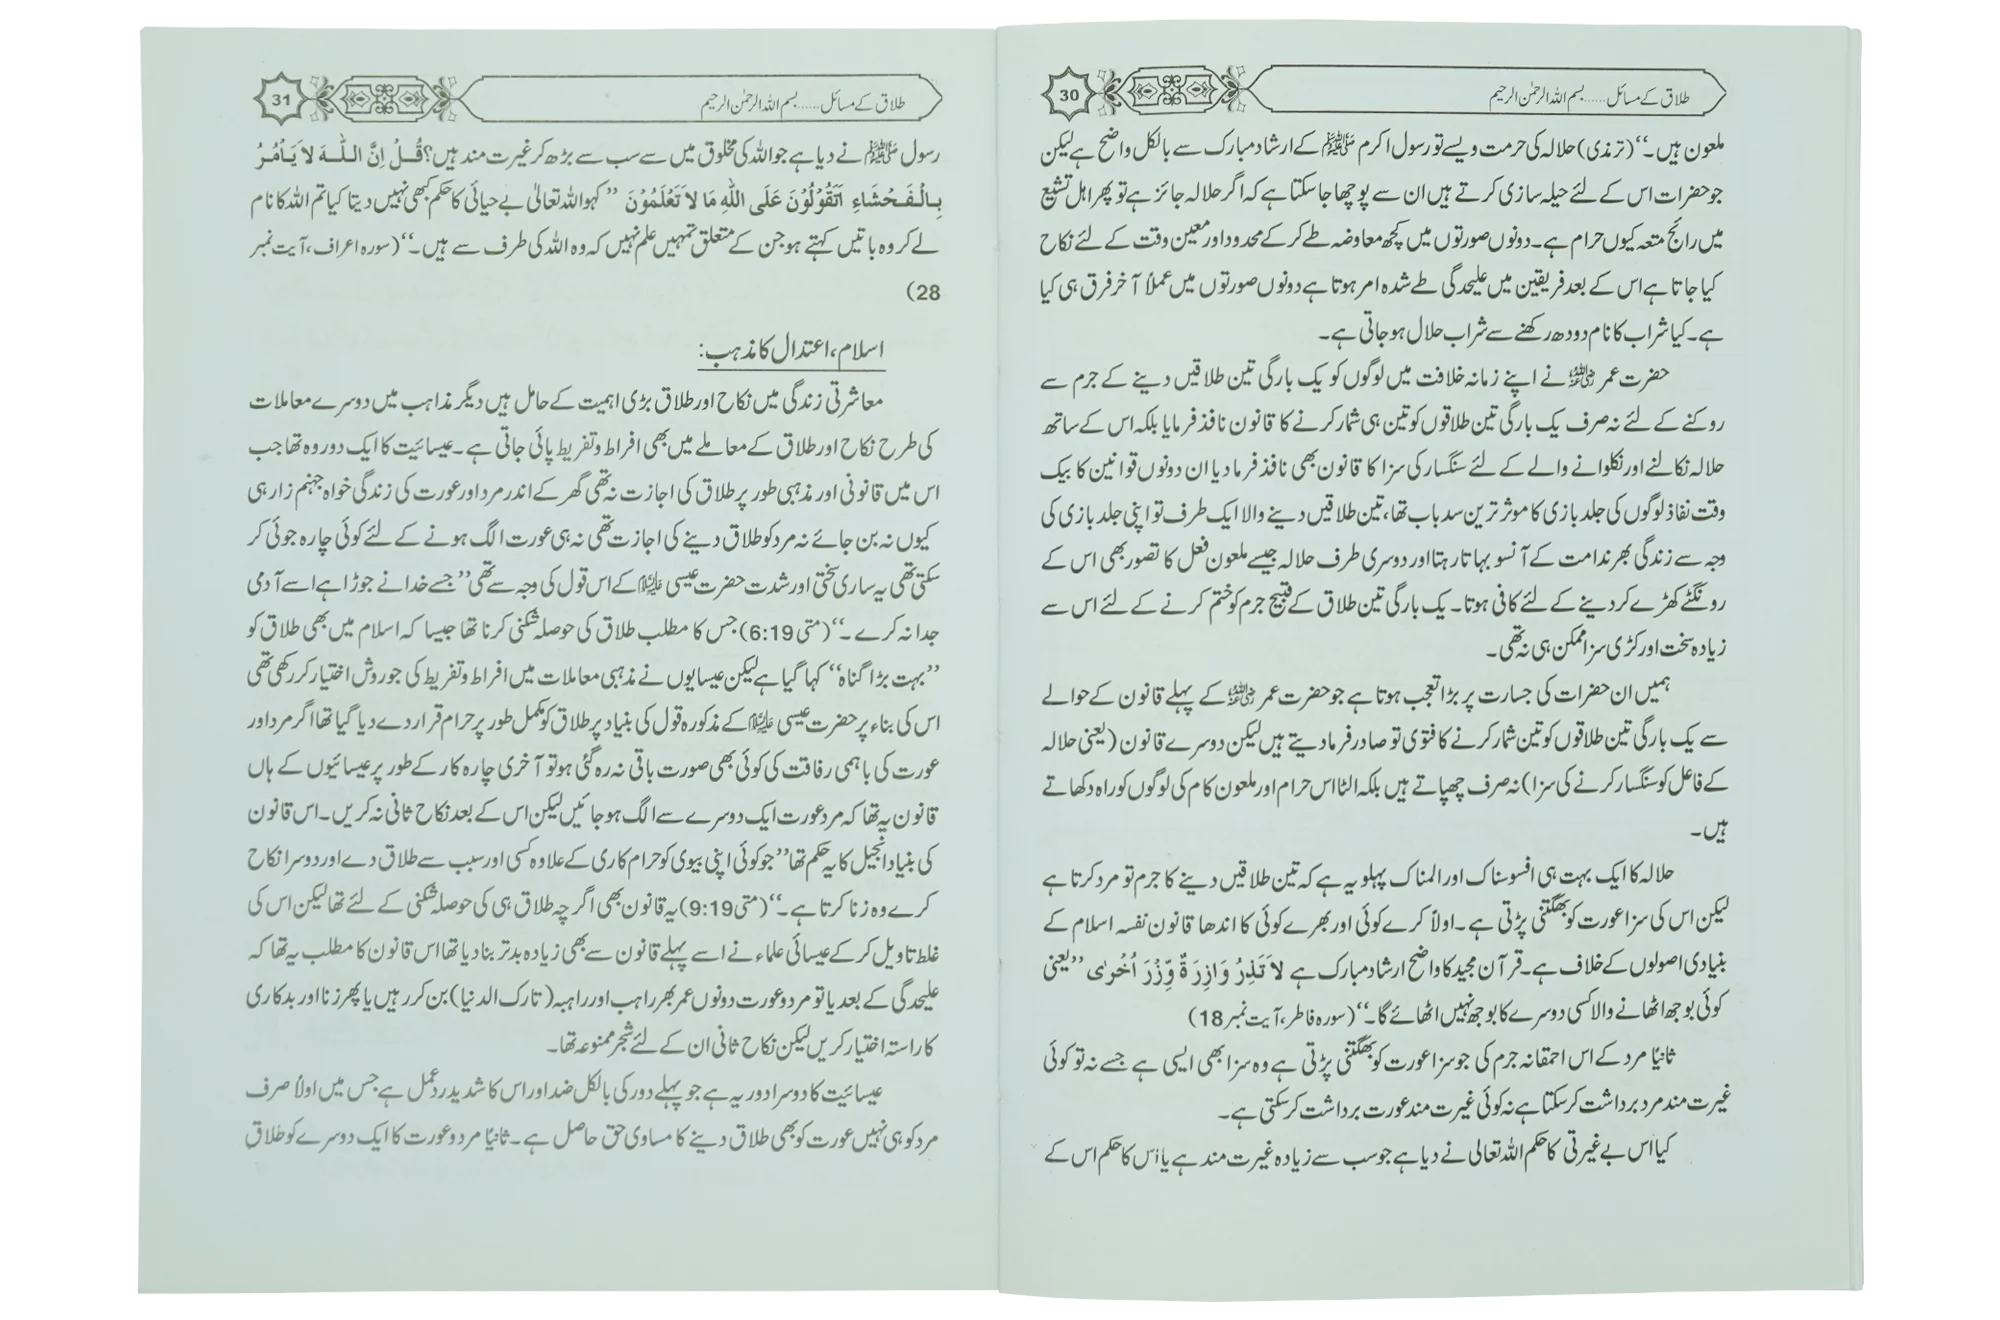 طلاق کے مسائل......بسم اللہ الرحمٰن الرحیم
30
ملعون ہیں۔‘‘(ترمذی) حلالہ کی حرمت ویسے تو رسول اکرم ﷺ کے ارشاد مبارک سے بالکل واضح ہے لیکن
جو حضرات اس کے لئے حیلہ سازی کرتے ہیں ان سے پوچھا جا سکتا ہے کہ اگر حلالہ جائز ہے تو پھر اہل تشیع
میں رائج متعہ کیوں حرام ہے۔ دونوں صورتوں میں کچھ معاوضہ طے کر کے محدود اور معین وقت کے لئے نکاح
کیا جاتا ہے اس کے بعد فریقین میں علیحدگی طے شدہ امر ہوتا ہے دونوں صورتوں میں عملاً آخر فرق ہی کیا
ہے۔ کیا شراب کا نام دودھ رکھنے سے شراب حلال ہو جاتی ہے۔
حضرت عمر رضی اللہ عنہ نے اپنے زمانہ خلافت میں لوگوں کو یک بارگی تین طلاقیں دینے کے جرم سے
روکنے کے لئے نہ صرف یک بارگی تین طلاقوں کو تین ہی شمار کرنے کا قانون نافذ فرمایا بلکہ اس کے ساتھ
حلالہ نکالنے اور نکلوانے والے کے لئے سنگسار کی سزا کا قانون بھی نافذ فرما دیا ان دونوں قوانین کا بیک
وقت نفاذ لوگوں کی جلد بازی کا موثر ترین سدباب تھا، تین طلاقیں دینے والا ایک طرف تو اپنی جلد بازی کی
وجہ سے زندگی بھر ندامت کے آنسو بہاتا رہتا اور دوسری طرف حلالہ جیسے ملعون فعل کا تصور بھی اس کے
رونگٹے کھڑے کر دینے کے لئے کافی ہوتا۔ یک بارگی تین طلاق کے قبیح جرم کو ختم کرنے کے لئے اس سے
زیادہ سخت اور کڑی سزا ممکن ہی نہ تھی۔
ہمیں ان حضرات کی جسارت پر بڑا تعجب ہوتا ہے جو حضرت عمر رضی اللہ عنہ کے پہلے قانون کے حوالے
سے یک بارگی تین طلاقوں کو تین شمار کرنے کا فتوی تو صادر فرما دیتے ہیں لیکن دوسرے قانون (یعنی حلالہ
کے فاعل کو سنگسار کرنے کی سزا) نہ صرف چھپاتے ہیں بلکہ الٹا اس حرام اور ملعون کام کی لوگوں کو راہ دکھاتے
ہیں۔
حلالہ کا ایک بہت ہی افسوسناک اور المناک پہلو یہ ہے کہ تین طلاقیں دینے کا جرم تو مرد کرتا ہے
لیکن اس کی سزا عورت کو بھگتنی پڑتی ہے۔ اولاً کرے کوئی اور بھرے کوئی کا اندھا قانون نفسہ اسلام کے
بنیادی اصولوں کے خلاف ہے۔ قرآن مجید کا واضح ارشاد مبارک ہے لاَ تَذِرُ وَازِرَةٌ وِّزْرَ اُخْرٰی ’’یعنی
کوئی بوجھ اٹھانے والا کسی دوسرے کا بوجھ نہیں اٹھائے گا۔‘‘ (سورہ فاطر، آیت نمبر 18)
ثانیًا مرد کے اس احمقانہ جرم کی جو سزا عورت کو بھگتنی پڑتی ہے وہ سزا بھی ایسی ہے جسے نہ تو کوئی
غیرت مند مرد برداشت کر سکتا ہے نہ کوئی غیرت مند عورت برداشت کر سکتی ہے۔
کیا اس بے غیرتی کا حکم اللہ تعالی نے دیا ہے جو سب سے زیادہ غیرت مند ہے یا اُس کا حکم اس کے
طلاق کے مسائل......بسم اللہ الرحمٰن الرحیم
31
رسول ﷺ نے دیا ہے جو اللہ کی مخلوق میں سے سب سے بڑھ کر غیرت مند ہیں؟ قُلْ اِنَّ اللّٰهَ لاَ يَاْمُرُ
بِالْفَحْشَاءِ اَتَقُوْلُوْنَ عَلَى اللّٰهِ مَا لاَ تَعْلَمُوْنَ ’’کہو اللہ تعالیٰ بے حیائی کا حکم کبھی نہیں دیتا کیا تم اللہ کا نام
لے کر وہ باتیں کہتے ہو جن کے متعلق تمہیں علم نہیں کہ وہ اللہ کی طرف سے ہیں۔‘‘ (سورہ اعراف، آیت نمبر
28)
اسلام، اعتدال کا مذہب:
معاشرتی زندگی میں نکاح اور طلاق بڑی اہمیت کے حامل ہیں دیگر مذاہب میں دوسرے معاملات
کی طرح نکاح اور طلاق کے معاملے میں بھی افراط و تفریط پائی جاتی ہے۔ عیسائیت کا ایک دور وہ تھا جب
اس میں قانونی اور مذہبی طور پر طلاق کی اجازت نہ تھی گھر کے اندر مرد اور عورت کی زندگی خواہ جہنم زار ہی
کیوں نہ بن جائے نہ مرد کو طلاق دینے کی اجازت تھی نہ ہی عورت الگ ہونے کے لئے کوئی چارہ جوئی کر
سکتی تھی یہ ساری سختی اور شدت حضرت عیسی علیہ السلام کے اس قول کی وجہ سے تھی ’’جسے خدا نے جوڑا ہے اسے آدمی
جدا نہ کرے۔‘‘ (متی 6:19) جس کا مطلب طلاق کی حوصلہ شکنی کرنا تھا جیسا کہ اسلام میں بھی طلاق کو
’’بہت بڑا گناہ‘‘ کہا گیا ہے لیکن عیسایوں نے مذہبی معاملات میں افراط و تفریط کی جو روش اختیار کر رکھی تھی
اس کی بناء پر حضرت عیسی علیہ السلام کے مذکورہ قول کی بنیاد پر طلاق کو مکمل طور پر حرام قرار دے دیا گیا تھا اگر مرد اور
عورت کی باہمی رفاقت کی کوئی بھی صورت باقی نہ رہ گئی ہو تو آخری چارہ کار کے طور پر عیسائیوں کے ہاں
قانون یہ تھا کہ مرد عورت ایک دوسرے سے الگ ہو جائیں لیکن اس کے بعد نکاح ثانی نہ کریں۔ اس قانون
کی بنیاد انجیل کا یہ حکم تھا ’’جو کوئی اپنی بیوی کو حرام کاری کے علاوہ کسی اور سبب سے طلاق دے اور دوسرا نکاح
کرے وہ زنا کرتا ہے۔‘‘ (متی 9:19) یہ قانون بھی اگر چہ طلاق ہی کی حوصلہ شکنی کے لئے تھا لیکن اس کی
غلط تاویل کر کے عیسائی علماء نے اسے پہلے قانون سے بھی زیادہ بدتر بنا دیا تھا اس قانون کا مطلب یہ تھا کہ
علیحدگی کے بعد یا تو مرد و عورت دونوں عمر بھر راہب اور راہبہ (تارک الدنیا) بن کر رہیں یا پھر زنا اور بدکاری
کا راستہ اختیار کریں لیکن نکاح ثانی ان کے لئے شجر ممنوعہ تھا۔
عیسائیت کا دوسرا دور یہ ہے جو پہلے دور کی بالکل ضد اور اس کا شدید ردعمل ہے جس میں اولاً صرف
مرد کو ہی نہیں عورت کو بھی طلاق دینے کا مساوی حق حاصل ہے۔ ثانیًا مرد و عورت کا ایک دوسرے کو طلاق